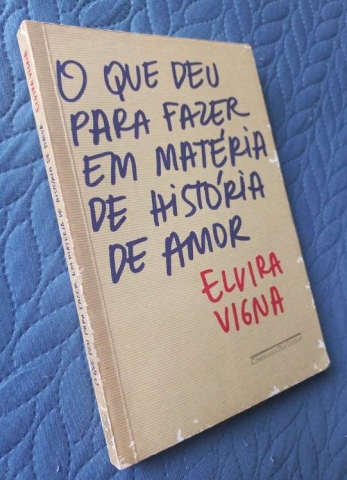 O QUE DEU
PARA FAZER
EM MATÉRIA
DE HISTÓRIA
DE AMOR
ELVIRA
VIGNA
COMPANHIA DAS LETRAS
O QUE DEU PARA FAZER EM MATÉRIA DE HISTÓRIA DE AMOR